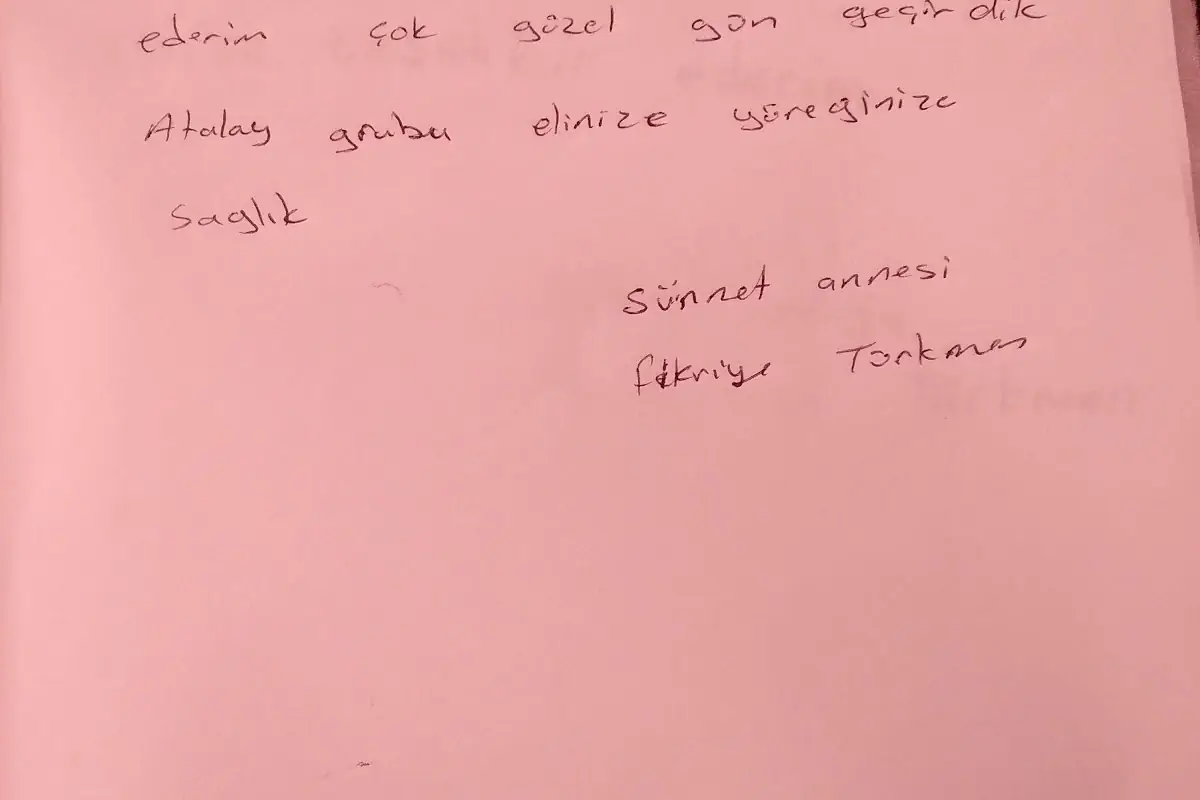 ederim çok güzel gün geçirdik
Atalay grubu elinize yüreğinize
Sağlık
Sünnet annesi
fikriye Türkmen